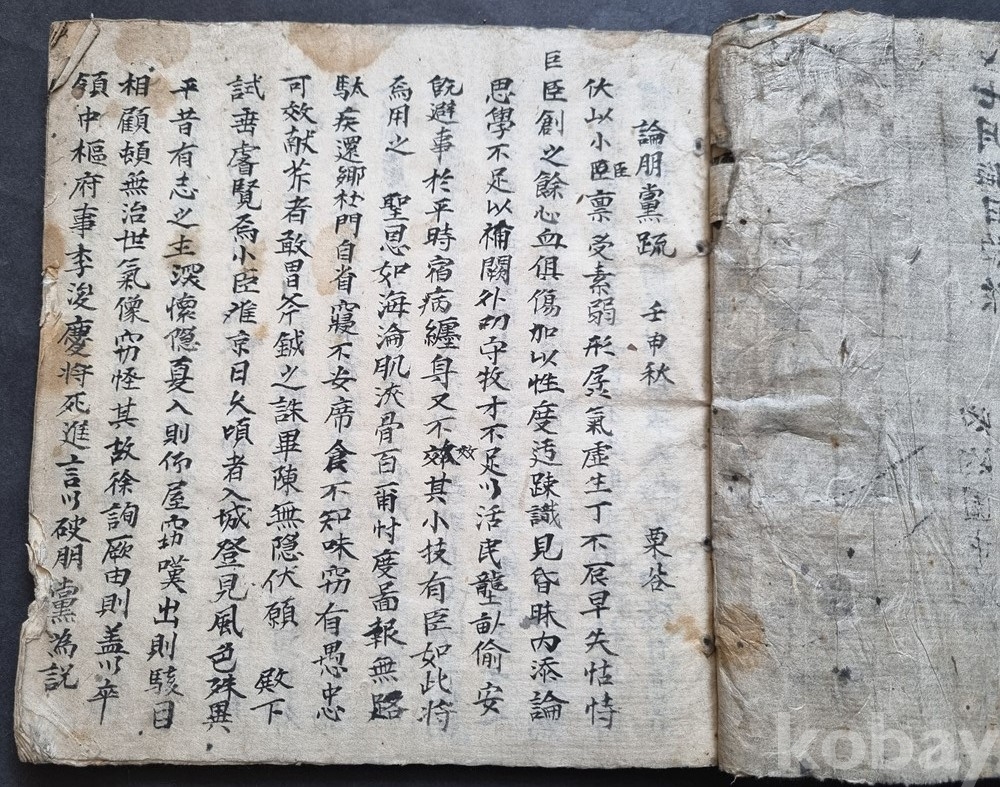 論朋黨疏 壬申秋 栗谷
伏以小臣臣禀受素弱形孱氣虛生丁不辰早失怙恃
巨臣創之餘心血俱傷加以性度迃踈識見昏昧內添論
思學不足以補闕外切守牧才不足以活民壟畝偷安
旣避事於平時宿病纏身又不效效其小技有臣如此將
焉用之 聖恩如海淪肌浹骨百爾忖度啚報無路
馱疾還鄉杜門自省寢不安席食不知味窃有愚忠
可效献芹者敢冒斧鉞之誅畢陳無隱伏願 殿下
試垂睿覽焉小臣難京日久頃者入城登見風色殊異
平昔有志之士深懷隱憂入則仰屋窃嘆出則駭目
相顧頓無治世氣像窃怪其故徐詢厥由則盖以卒
領中樞府事李浚慶將死進言以破朋黨為說
kobay